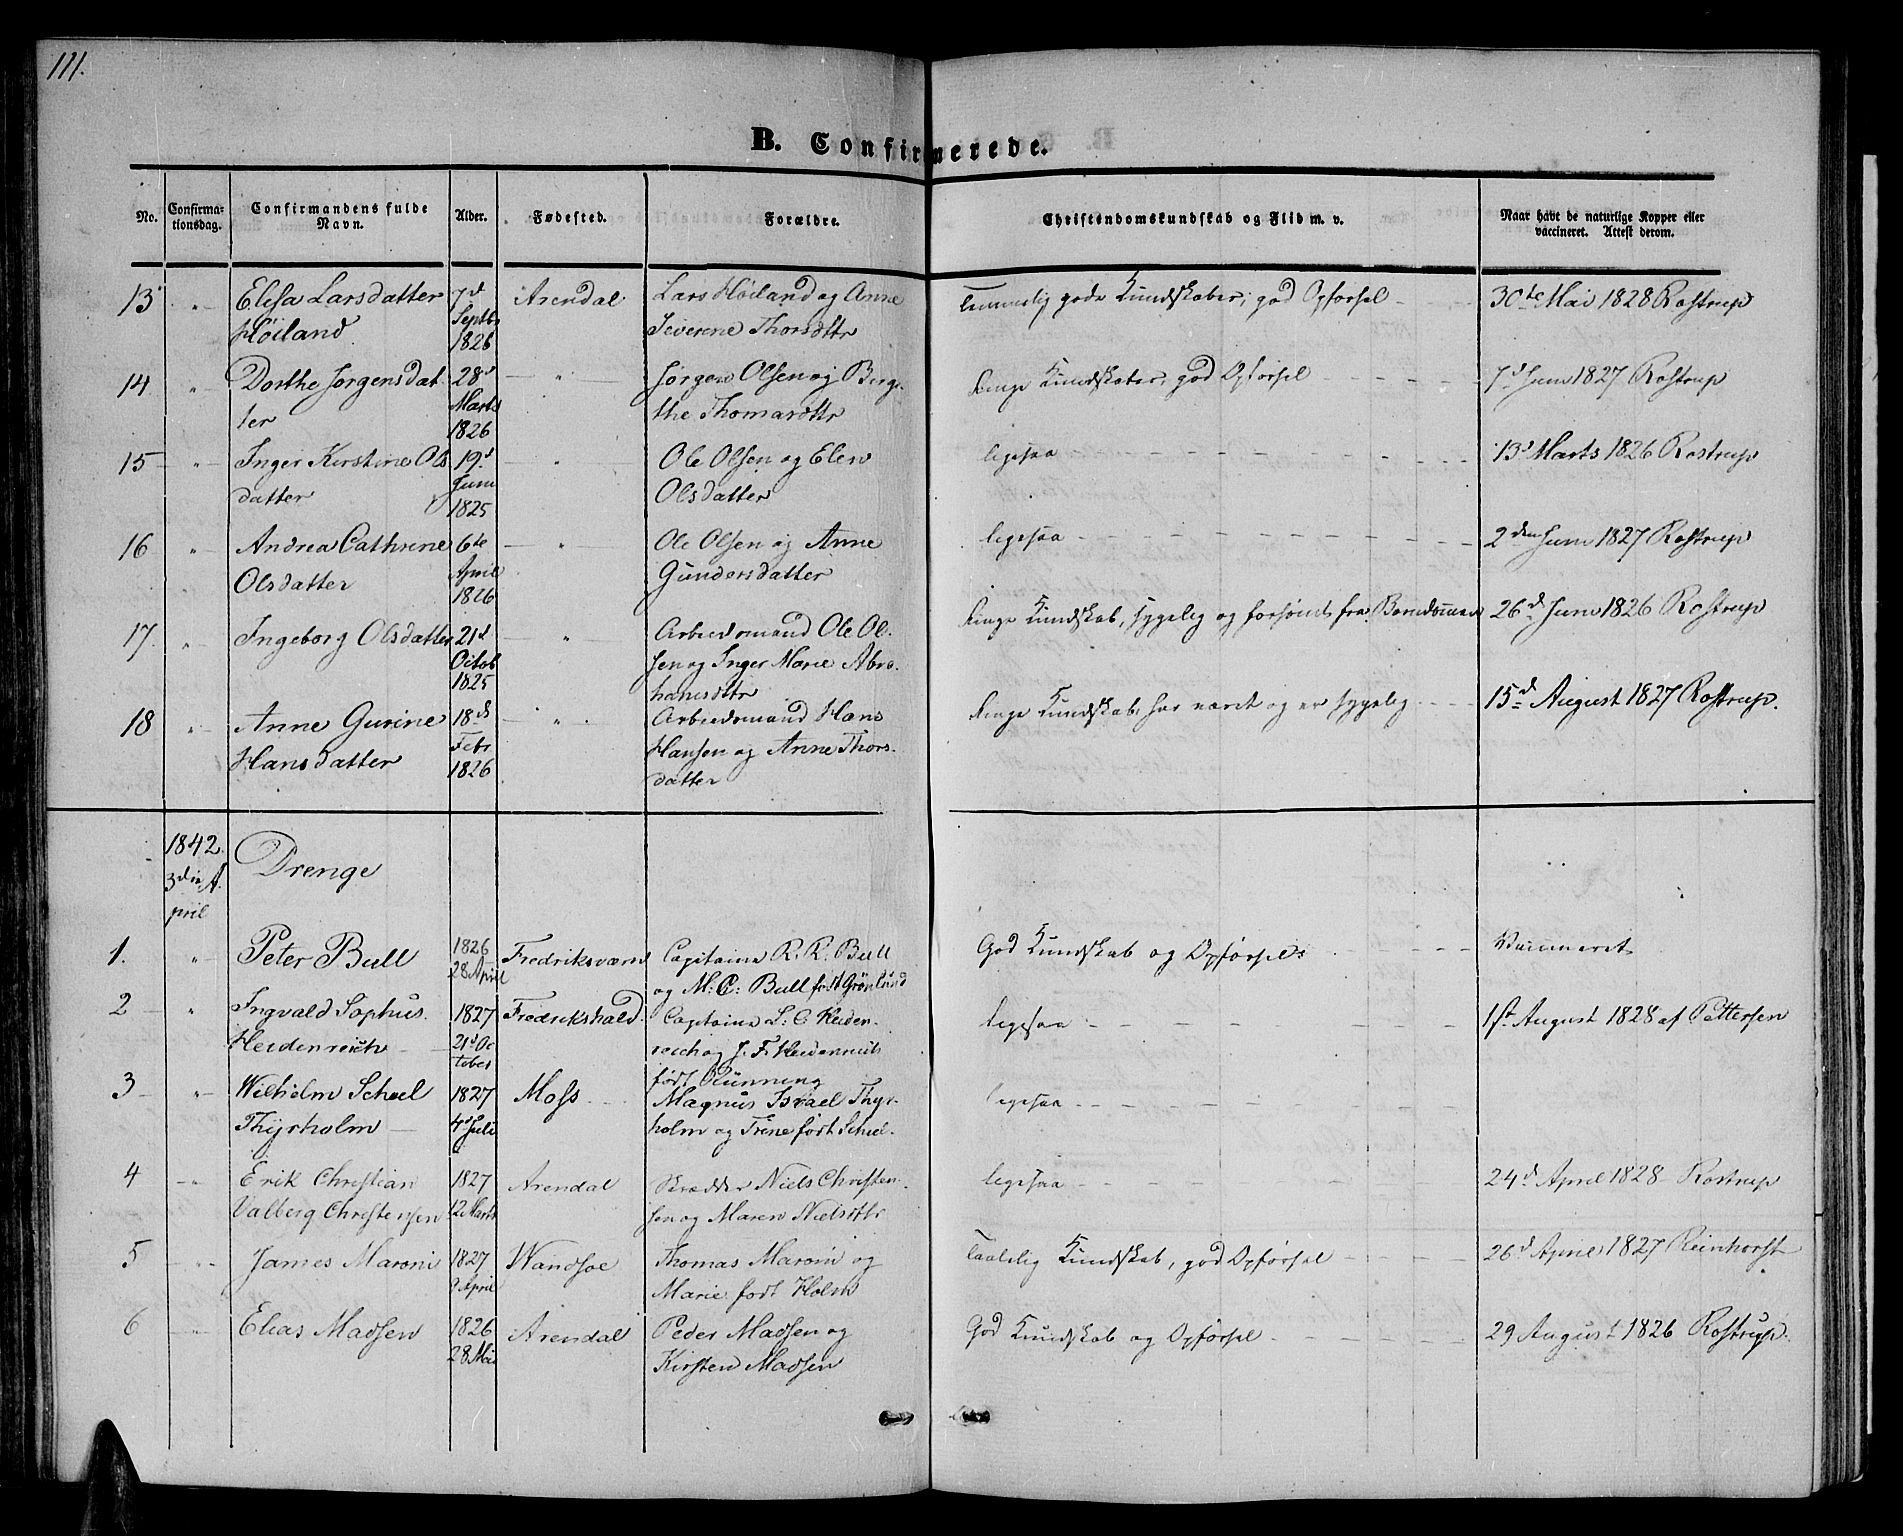 111.
B. Confirmerede.
No. Confirmationsdag. Confirmandens fulde Navn. Alder. Fødested. Forældre. Christendomskundskab og Flid m. v. Naar havt de naturlige Kopper eller vaccineret. Attest derom.
13 " Elisa Larsdatter 7d Arendal Lars Høiland og Anne Temmelig gode Kundskaber; god Opførsel 30te Mai 1828 Rostrup
Høiland Septbr Severene Thorsdttr
1826
14 " Dorthe Jørgensdat- 28d " Jørgen Olsen og Birge- Ringe Kundskaber, god Opførsel 7d Juni 1827 Rostrup
ter Marts the Thomasdttr
1826
15 " Inger Kirstine Ols 19d " Ole Olsen og Elen ligesaa 13d Marts 1826 Rostrup
datter Juni Olsdatter
1825
16 " Andrea Cathrine 6te " Ole Olsen og Anne ligesaa 2den Juni 1827 Rostrup
Olsdatter April Gundersdatter
1826
17. " Ingeborg Olsdatter 21d " Arbeidsmand Ole Ol- Ringe Kundskab, sygelig og forsømt fra Barndommen 26d Juni 1826 Rostrup
Octob sen og Inger Marie Abra-
1825 hamsdttr
18 " Anne Gurine 18d " Arbeidsmand Hans Ringe Kundskab, har været og er sygelig 15d August 1827 Rostrup.
Hansdatter Febr Hansen og Anne Thors-
1826 datter
1842. Drenge
3die A-
pril
1. " Peter Bull 1826 Fredriksværn Capitaine R. R. Bull God Kundskab og Opførsel Vaccineret
28 April og M: C: Bull født Grønlund
2 " Ingvald Sophus 1827 Fredrikshald Capitaine L: C Heiden- ligesaa 1ste August 1828 af Pettersen
Heidenreich 21d Oc reich og J. F. Heidenreich
tober født Rünning
3 " Wilhelm Scheel 1827 Moss Magnus Israel Thyr- ligesaa
Thyrholm 4d Juli holm og Trine født Scheel
4 " Erik Christian 1827 Arendal Skrædder Niels Christen- ligesaa 24d April 1828 Rostrup
Valberg Christensen 12 Marts sen og Maren Nielsdttr
5 " James Maroni 1827 Wandsøe Thomas Maroni og Taalelig Kundskab, god Opførsel 26d April 1827 Reinhorst
9 April Marie født Holm
6 " Elias Madsen 1826 Arendal Peder Madsen og God Kundskab og Opførsel 29 August 1826 Rostrup.
28 Mai Kirsten Madsen